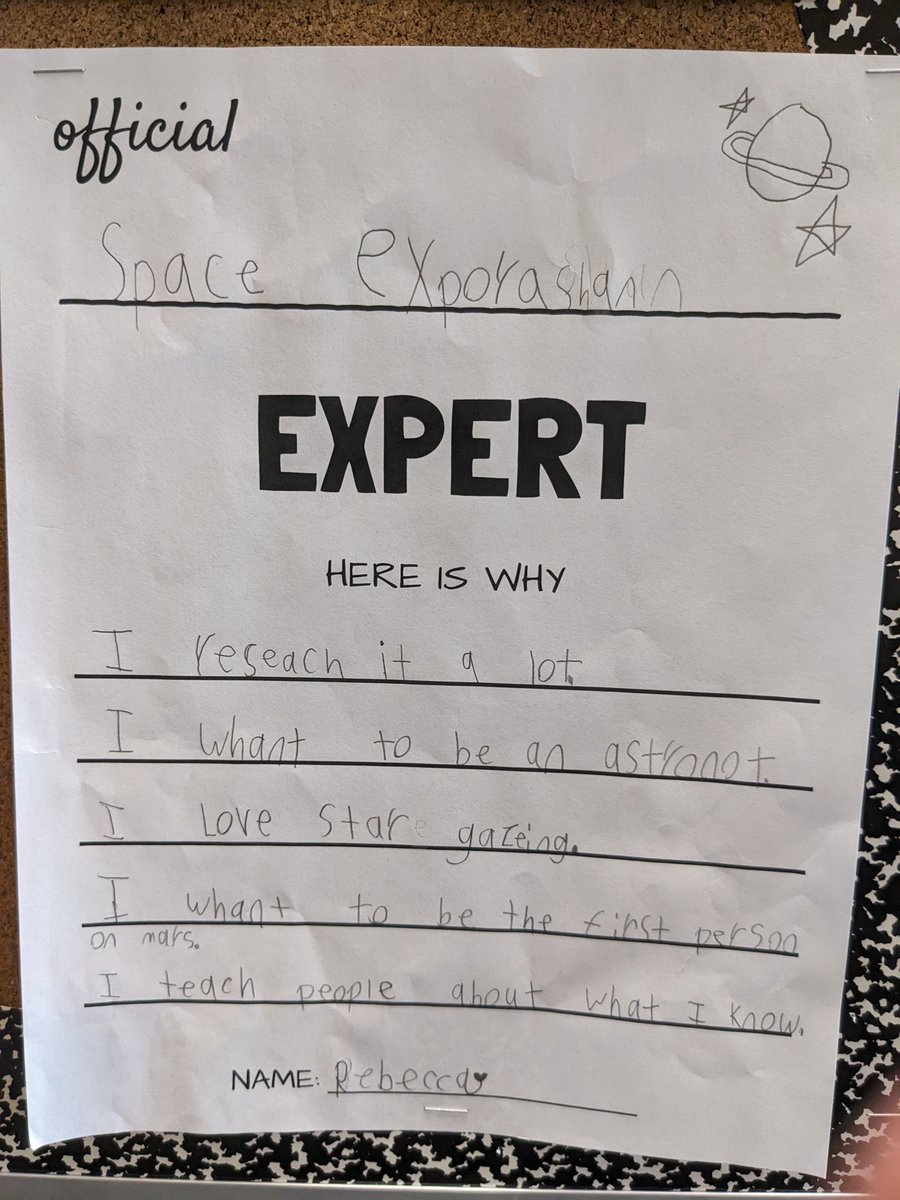 official
Space Exporashanin
EXPERT
HERE IS WHY
I reseach it a lot.
I whant to be an astronot.
I Love Star gazeing.
I whant to be the first person
on mars.
I teach people about what I know.
NAME: Rebecca